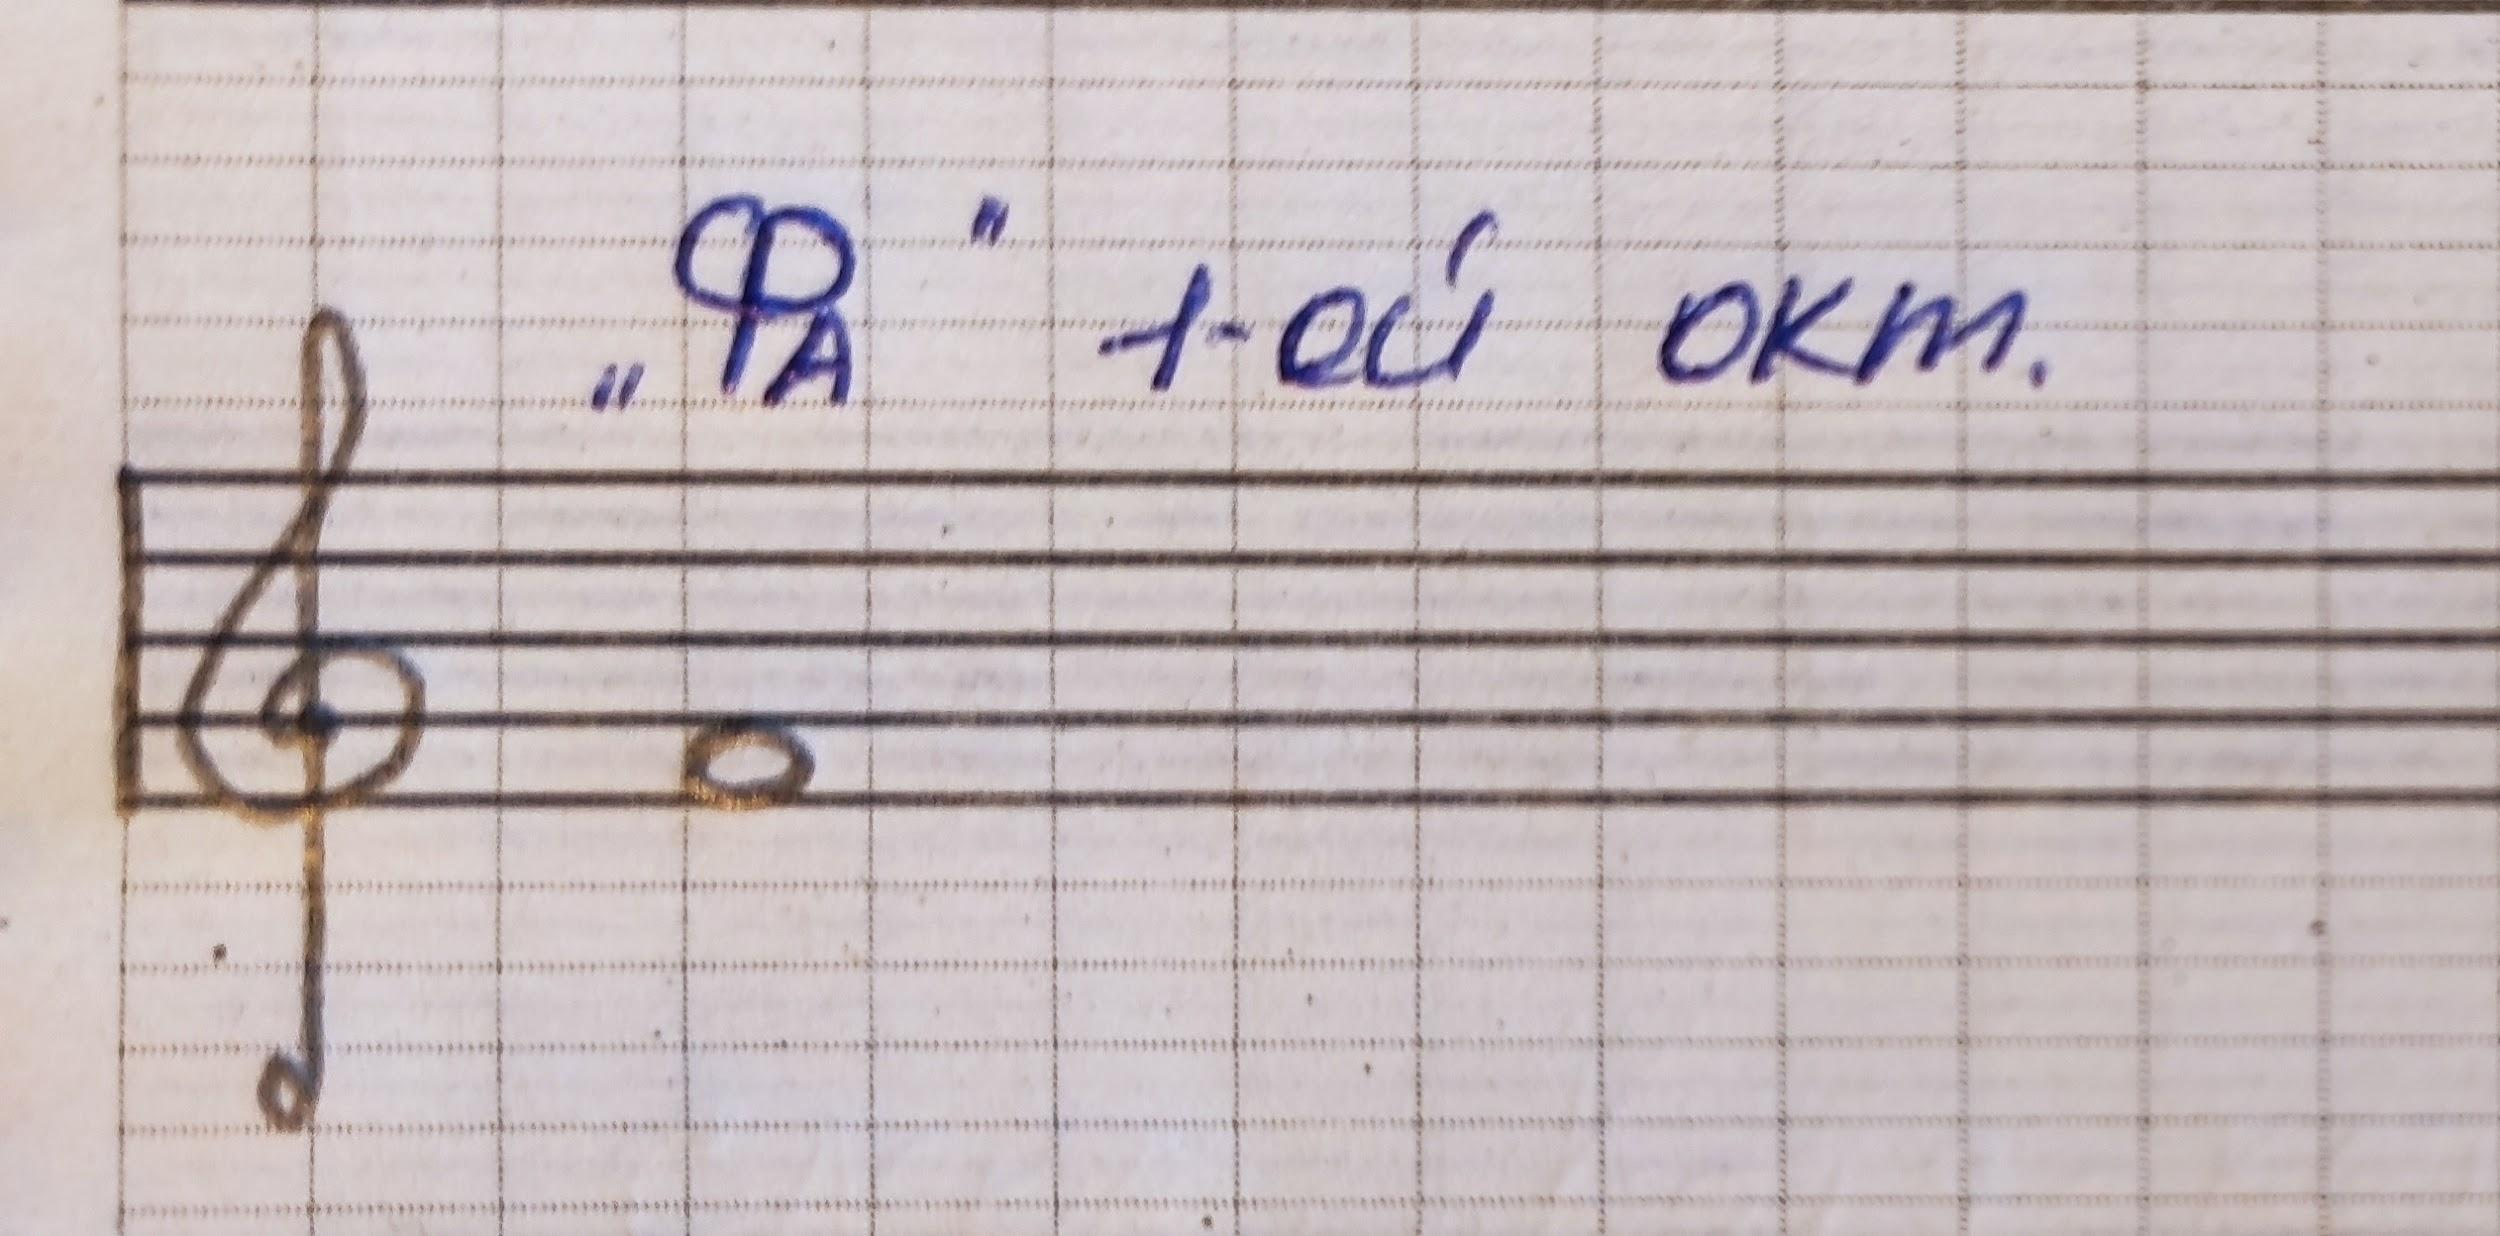 „Фа" 1-ой окт.